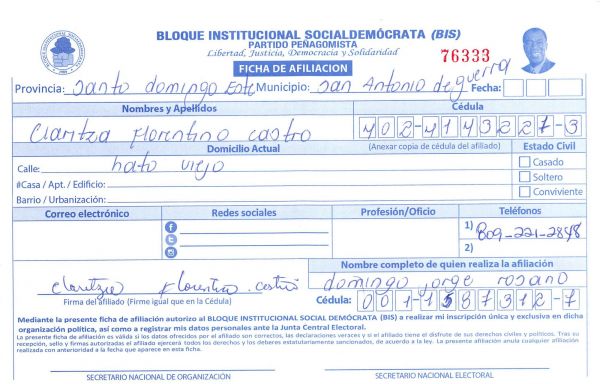 BLOQUE INSTITUCIONAL SOCIALDEMÓCRATA (BIS)
PARTIDO PEÑAGOMISTA
Libertad, Justicia, Democracia y Solidaridad
76333
FICHA DE AFILIACION
Provincia: Santo domingo Este Municipio: San Antonio de guerra Fecha:
Nombres y Apellidos Cédula
Claritza Florentino Castro 402-4143227-3
Domicilio Actual (Anexar copia de cédula del afiliado) Estado Civil
Calle: hato viejo Casado
#Casa / Apt. / Edificio: Soltero
Barrio / Urbanización: Conviviente
Correo electrónico Redes sociales Profesión/Oficio Teléfonos
1) 809-221-2848
2)
Nombre completo de quien realiza la afiliación
claritza Florentino castro domingo jorge rosano
Firma del afiliado (Firme igual que en la Cédula) Cédula: 001-1587312-7
Mediante la presente ficha de afiliación autorizo al BLOQUE INSTITUCIONAL SOCIAL DEMÓCRATA (BIS) a realizar mi inscripción única y exclusiva en dicha
organización política, así como a registrar mis datos personales ante la Junta Central Electoral.
La presente ficha de afiliación es válida si los datos ofrecidos por el afiliado son correctos, las declaraciones veraces y si el afiliado tiene el disfrute de sus derechos civiles y políticos. Tras su
recepción, sello y firmas autorizadas el afiliado ejercerá todos los derechos y los deberes estatutariamente sancionados, de acuerdo a la ley. La presente afiliación anula cualquier afiliación
realizada con anterioridad a la fecha que aparece en esta ficha.
SECRETARIO NACIONAL DE ORGANIZACIÓN SECRETARIO NACIONAL ELECTORAL